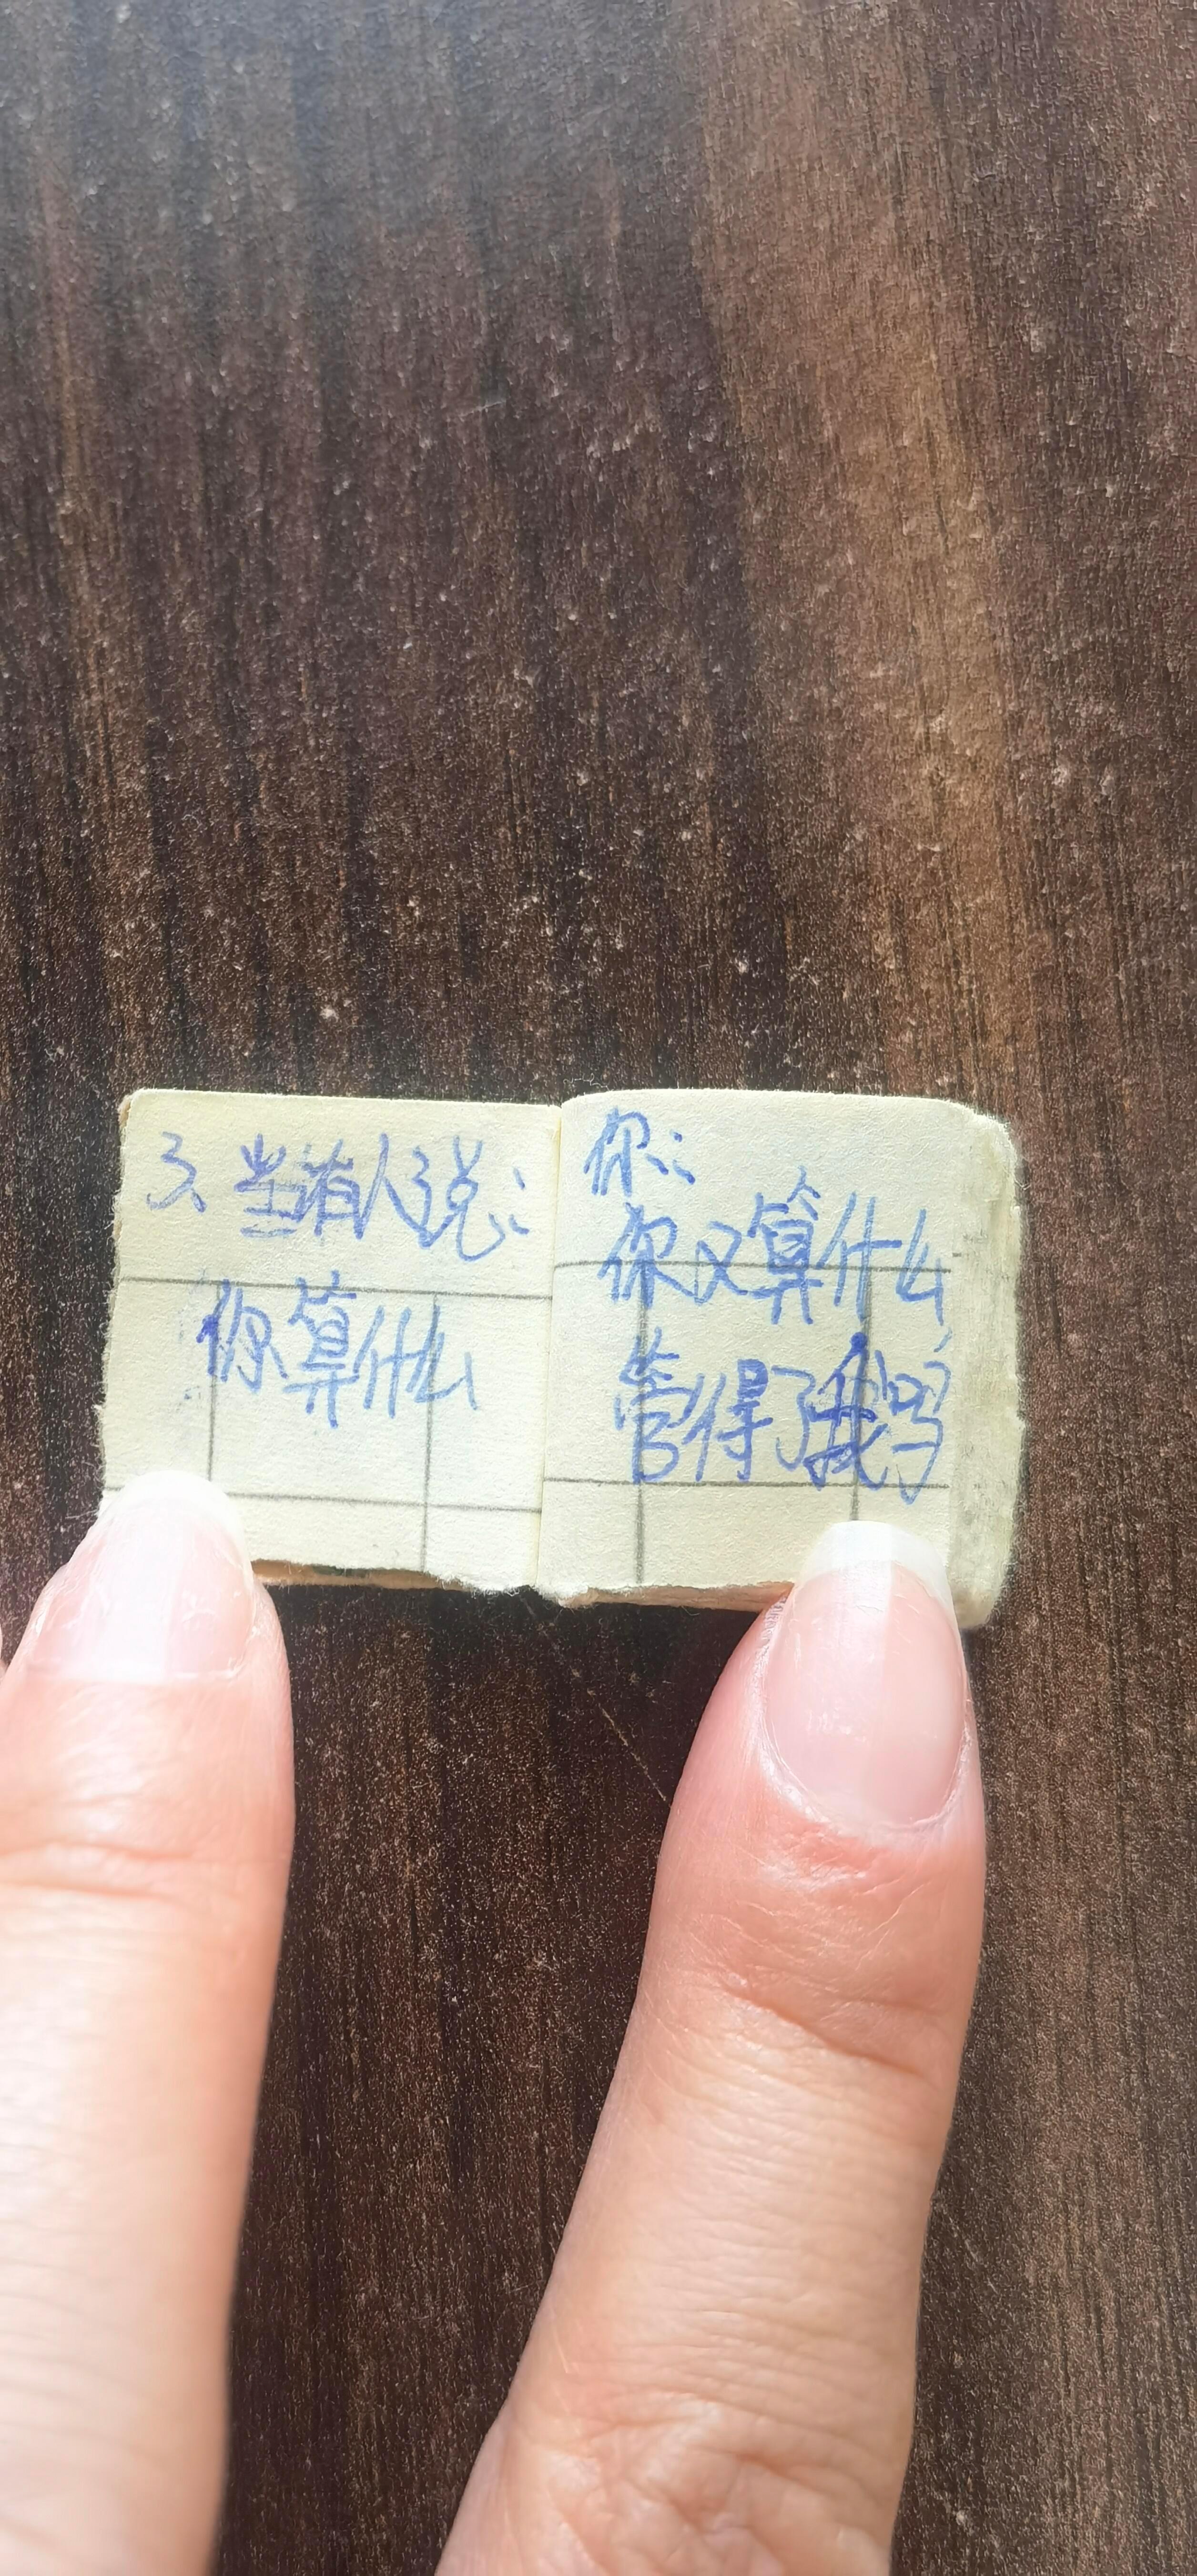 3、当有人说：
你算什么
你：
你又算什么
管得了我吗